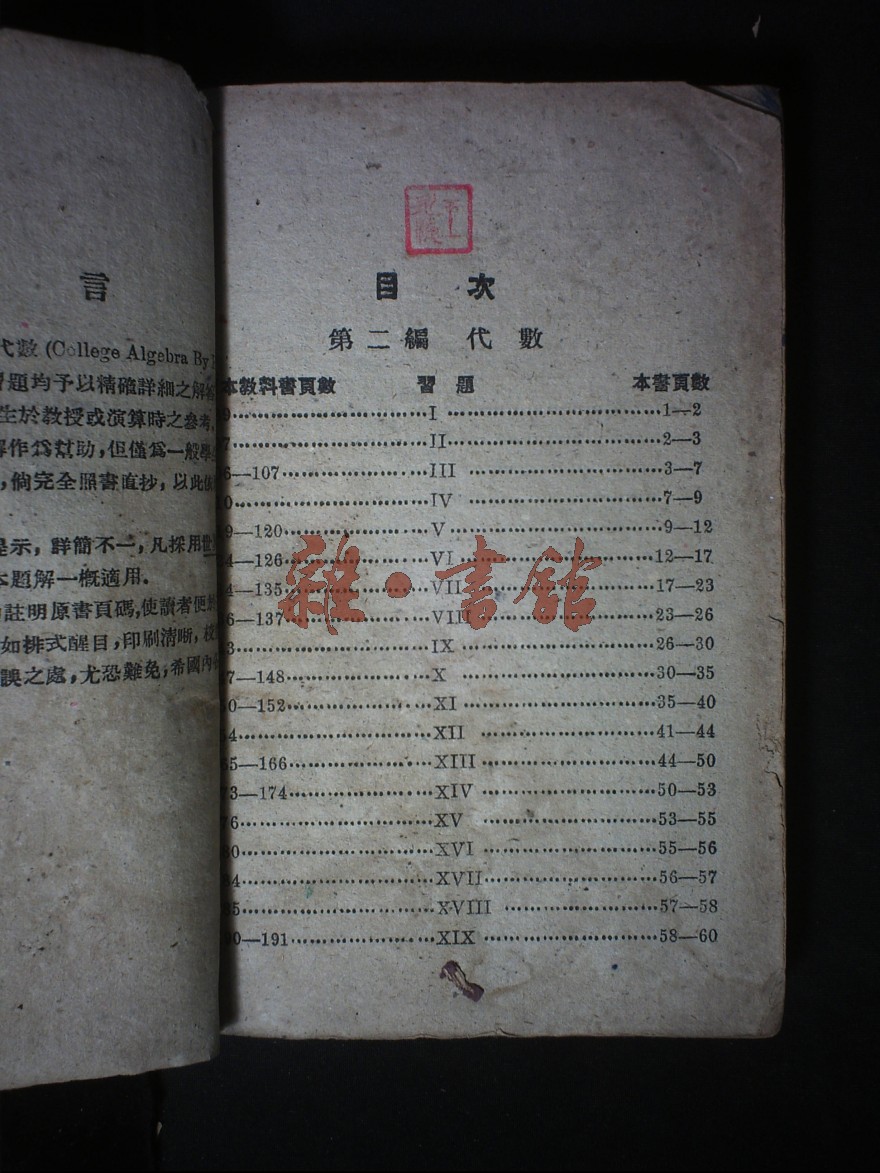 言
代數 (College Algebra By
習題均予以精確詳細之解答
生於教授或演算時之參考,
作爲幫助,但僅爲一般學
,倘完全照書直抄,以此
示,詳簡不一,凡採用世
本題解一概適用.
註明原書頁碼,使讀者便
如排式醒目,印刷清晰,
誤之處,尤恐難免,希國內
目 次
第二編 代數
本教科書頁數 習題 本書頁數
I 1—2
II 2—3
—107 III 3—7
IV 7—9
—120 V 9—12
—126 VI 12—17
—135 VII 17—23
—137 VIII 23—26
IX 26—30
—148 X 30—35
—152 XI 35—40
XII 41—44
—166 XIII 44—50
—174 XIV 50—53
XV 53—55
XVI 55—56
XVII 56—57
XVIII 57—58
—191 XIX 58—60
雜·書館